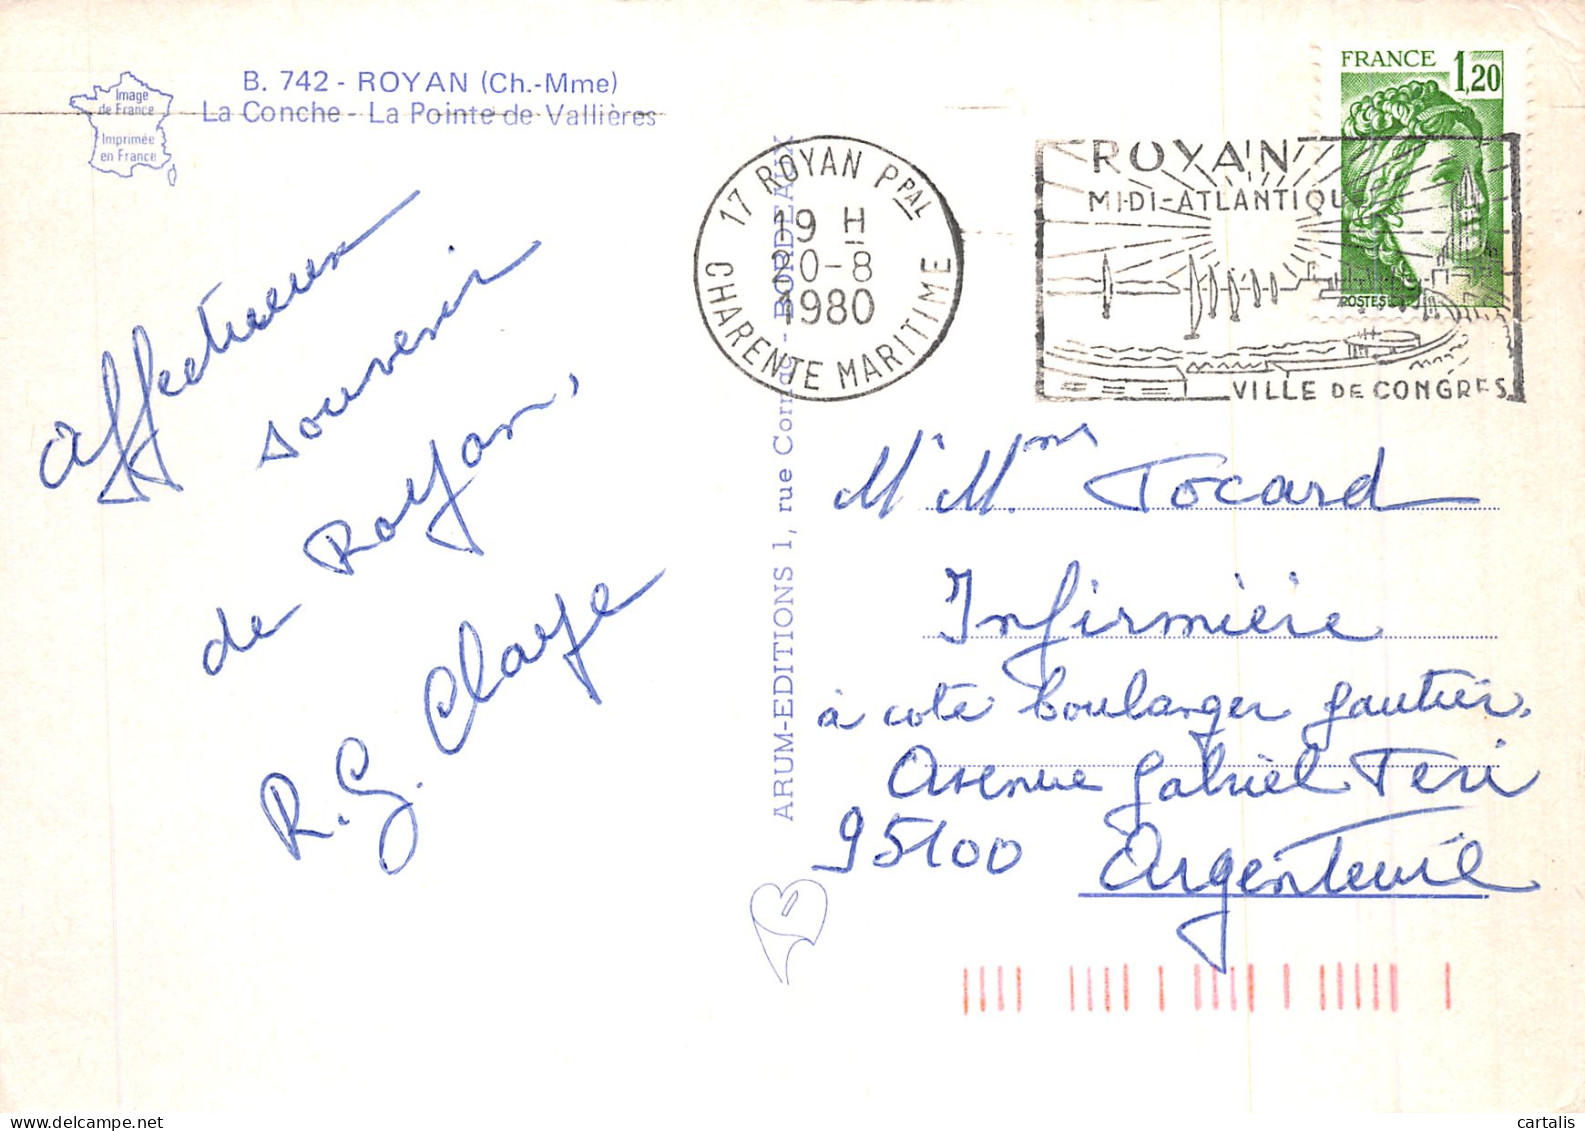 B. 742 - ROYAN (Ch.-Mme)
La Conche - La Pointe de Vallières
Image
de France
Imprimée
en France
affectueux
souvenir
de Royan,
R. G. Claye
ARUM-EDITIONS 1, rue - BORDEAUX
17 ROYAN PPAL
19 H
20-8
1980
CHARENTE MARITIME
ROYAN
MIDI-ATLANTIQU
VILLE DE CONGRES
FRANCE
1,20
POSTES
Mr Mme Tocard
Infirmière
à coté boulanger Gautier.
Avenue Gabriel Peri
95100 Argenteuil
cartalis